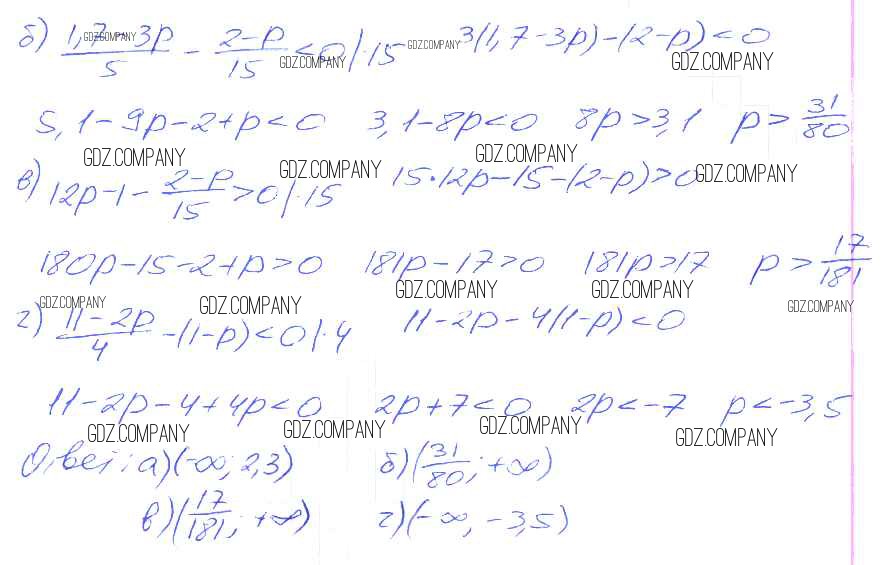 б) (1,7-3p)/5 - (2-p)/15 < 0 |·15   3(1,7-3p)-(2-p)<0
5,1-9p-2+p<0   3,1-8p<0   8p>3,1   p>31/80
в) 12p-1-(2-p)/15>0 |·15   15·12p-15-(2-p)>0
180p-15-2+p>0   181p-17>0   181p>17   p>17/181
г) (11-2p)/4-(1-p)<0 |·4   11-2p-4(1-p)<0
11-2p-4+4p<0   2p+7<0   2p<-7   p<-3,5
Ответ: а)(-∞; 2,3)   б)(31/80; +∞)
в)(17/181; +∞)   г)(-∞, -3,5)
GDZ.COMPANY GDZ.COMPANY GDZ.COMPANY GDZ.COMPANY
GDZ.COMPANY GDZ.COMPANY GDZ.COMPANY GDZ.COMPANY
GDZ.COMPANY GDZ.COMPANY GDZ.COMPANY GDZ.COMPANY GDZ.COMPANY
GDZ.COMPANY GDZ.COMPANY GDZ.COMPANY GDZ.COMPANY